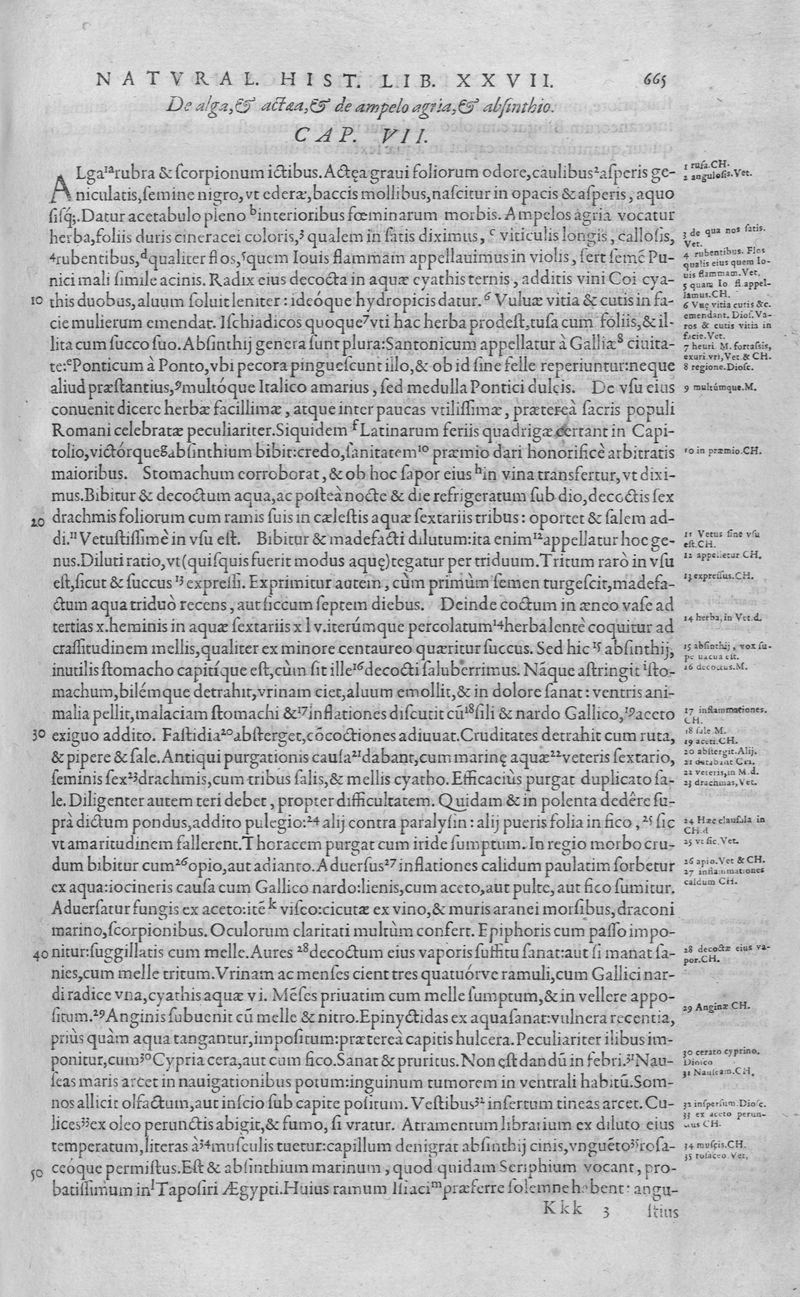 NATVRAL. HIST. LIB. XXVII. 665
De alga,& actæa,& de ampelo agria,& absinthio.
CAP. VII.
ALga¹ᵃrubra & ſcorpionum ictibus.Actęa graui foliorum odore,caulibus²aſperis ge-
niculatis,ſemine nigro,vt ederæ,baccis mollibus,naſcitur in opacis & aſperis, aquo
ſiſq;.Datur acetabulo pleno ᵇinterioribus fœminarum morbis. Ampelos agria vocatur
herba,foliis duris cineracei coloris,³ qualem in ſatis diximus, ᶜ viticulis longis, calloſis,
⁴rubentibus,ᵈqualiter flos,⁵quem Iouis flammam appellauimus in violis, fert ſemē Pu-
nici mali ſimile acinis. Radix eius decocta in aquæ cyathis ternis, additis vini Coi cya-
10 this duobus,aluum ſoluit leniter: ideóque hydropicis datur.⁶ Vuluæ vitia & cutis in fa-
cie mulierum emendat. Iſchiadicos quoque⁷vti hac herba prodeſt,tuſa cum foliis,& il-
lita cum ſucco ſuo.Abſinthij genera ſunt plura:Santonicum appellatur à Galliæ⁸ ciuita-
te:ᵉPonticum à Ponto,vbi pecora pingueſcunt illo,& ob id ſine felle reperiuntur:neque
aliud præſtantius,⁹multóque Italico amarius, ſed medulla Pontici dulcis. De vſu eius
conuenit dicere herbæ facillimæ, atque inter paucas vtiliſſimæ, prætereà ſacris populi
Romani celebratæ peculiariter.Siquidem ᶠLatinarum feriis quadrigæ certant in Capi-
tolio,victórqueᵍabſinthium bibit:credo,ſanitatem¹⁰ præmio dari honorificè arbitratis
maioribus. Stomachum corroborat, & ob hoc ſapor eius ʰin vina transfertur, vt dixi-
mus.Bibitur & decoctum aqua,ac poſteà nocte & die refrigeratum ſub dio,decoctis ſex
20 drachmis foliorum cum ramis ſuis in cæleſtis aquæ ſextariis tribus: oportet & ſalem ad-
di.¹¹ Vetuſtiſſimè in vſu eſt. Bibitur & madefacti dilutum:ita enim¹²appellatur hoc ge-
nus.Diluti ratio,vt(quiſquis fuerit modus aquę)tegatur per triduum.Tritum rarò in vſu
eſt,ſicut & ſuccus ¹³ expreſſi. Exprimitur autem, cùm primùm ſemen turgeſcit,madefa-
ctum aqua triduò recens, aut ſiccum ſeptem diebus. Deinde coctum in æneo vaſe ad
tertias x.heminis in aquæ ſextariis x l v.iterúmque percolatum¹⁴herba lentè coquitur ad
craſſitudinem mellis,qualiter ex minore centaureo quæritur ſuccus. Sed hic ¹⁵ abſinthij,
inutilis ſtomacho capitíque eſt,cùm ſit ille¹⁶decocti ſaluberrimus. Nāque aſtringit ⁱſto-
machum,bilémque detrahit,vrinam ciet,aluum emollit,& in dolore ſanat: ventris ani-
malia pellit,malaciam ſtomachi &¹⁷inflationes diſcutit cū¹⁸ſili & nardo Gallico,¹⁹aceto
30 exiguo addito. Faſtidia²⁰abſterget,cōcoctiones adiuuat.Cruditates detrahit cum ruta,
& pipere & ſale.Antiqui purgationis cauſa²¹dabant,cum marinę aquæ²²veteris ſextario,
ſeminis ſex²³drachmis,cum tribus ſalis,& mellis cyatho.Efficaciùs purgat duplicato ſa-
le. Diligenter autem teri debet, propter difficultatem. Quidam & in polenta dedêre ſu-
prà dictum pondus,addito pulegio:²⁴ alij contra paralyſin: alij pueris folia in fico, ²⁵ ſic
vt amaritudinem fallerent.Thoracem purgat cum iride ſumptum. In regio morbo cru-
dum bibitur cum²⁶opio,aut adianto.Aduerſus²⁷inflationes calidum paulatim ſorbetur
ex aqua:iocineris cauſa cum Gallico nardo:lienis,cum aceto,aut pulte, aut fico ſumitur.
Aduerſatur fungis ex aceto:itē ᵏ viſco:cicutæ ex vino,& muris aranei morſibus,draconi
marino,ſcorpionibus. Oculorum claritati multùm confert. Epiphoris cum paſſo impo-
40 nitur:ſuggillatis cum melle.Aures ²⁸decoctum eius vaporis ſuffitu ſanat:aut ſi manat ſa-
nies,cum melle tritum.Vrinam ac menſes cient tres quatuórve ramuli,cum Gallici nar-
di radice vna,cyathis aquæ vi. Mēſes priuatim cum melle ſumptum,& in vellere appo-
ſitum.²⁹Anginis ſubuenit cū melle & nitro.Epinyctidas ex aqua ſanat:vulnera recentia,
priùs quàm aqua tangantur,impoſitum:prætereà capitis hulcera.Peculiariter ilibus im-
ponitur,cum³⁰Cypria cera,aut cum fico.Sanat & pruritus.Non eſt dandū in febri.³¹Nau-
ſeas maris arcet in nauigationibus potum:inguinum tumorem in ventrali habitū.Som-
nos allicit olfactum,aut inſcio ſub capite poſitum. Veſtibus³² inſertum tineas arcet. Cu-
lices³³ex oleo perunctis abigit,& fumo, ſi vratur. Atramentum librarium ex diluto eius
temperatum,literas à³⁴muſculis tuetur:capillum denigrat abſinthij cinis,vnguēto³⁵roſa-
50 ceóque permiſtus.Eſt & abſinthium marinum, quod quidam Seriphium vocant, pro-
batiſſimum inˡTapoſiri Ægypti.Huius ramum Iſiaciᵐpræferre ſolemne habent: angu-
Kkk 3 ſtius
1 rufa.CH.
2 anguloſis.Vet.
3 de qua nos ſatis.
Vet.
4 rubentibus. Flos
qualis eius quem Io-
uis flammam.Vet.
5 quam Io fl appel-
lamus.CH.
6 Vuę vitia cutis &c.
emendant. Dioſ. Va-
ros & cutis vitia in
facie.Vet.
7 heuri M. fortaſsis,
exuri.vri,Vet & CH.
8 regione.Dioſc.
9 multúmque.M.
10 in præmio.CH.
11 Vetus ſine vſu
eſt.CH.
12 appelletur CH.
13 expreſſus.CH.
14 herba,in Vet.d.
15 abſinthij, vox ſu-
pe uacua eſt.
16 decoctus.M.
17 inflammationes.
CH.
18 ſale M.
19 aceti.CH.
20 abſtergit.Alij.
21 dutabant CH.
22 veteris,in M.d.
23 drachmas,Vet.
24 Hæc clauſula in
CH d
25 vt ſic Vet.
26 apio.Vet & CH.
27 inflammationes
calidum CH.
28 decoctæ eius va-
por.CH.
29 Anginæ CH.
30 cerato cyprino.
Dioſco
31 Nauſeam.CH.
32 inſperſum.Dioſc.
33 ex aceto perun-
ctus CH.
34 muſcis.CH.
35 roſaceo Vet.